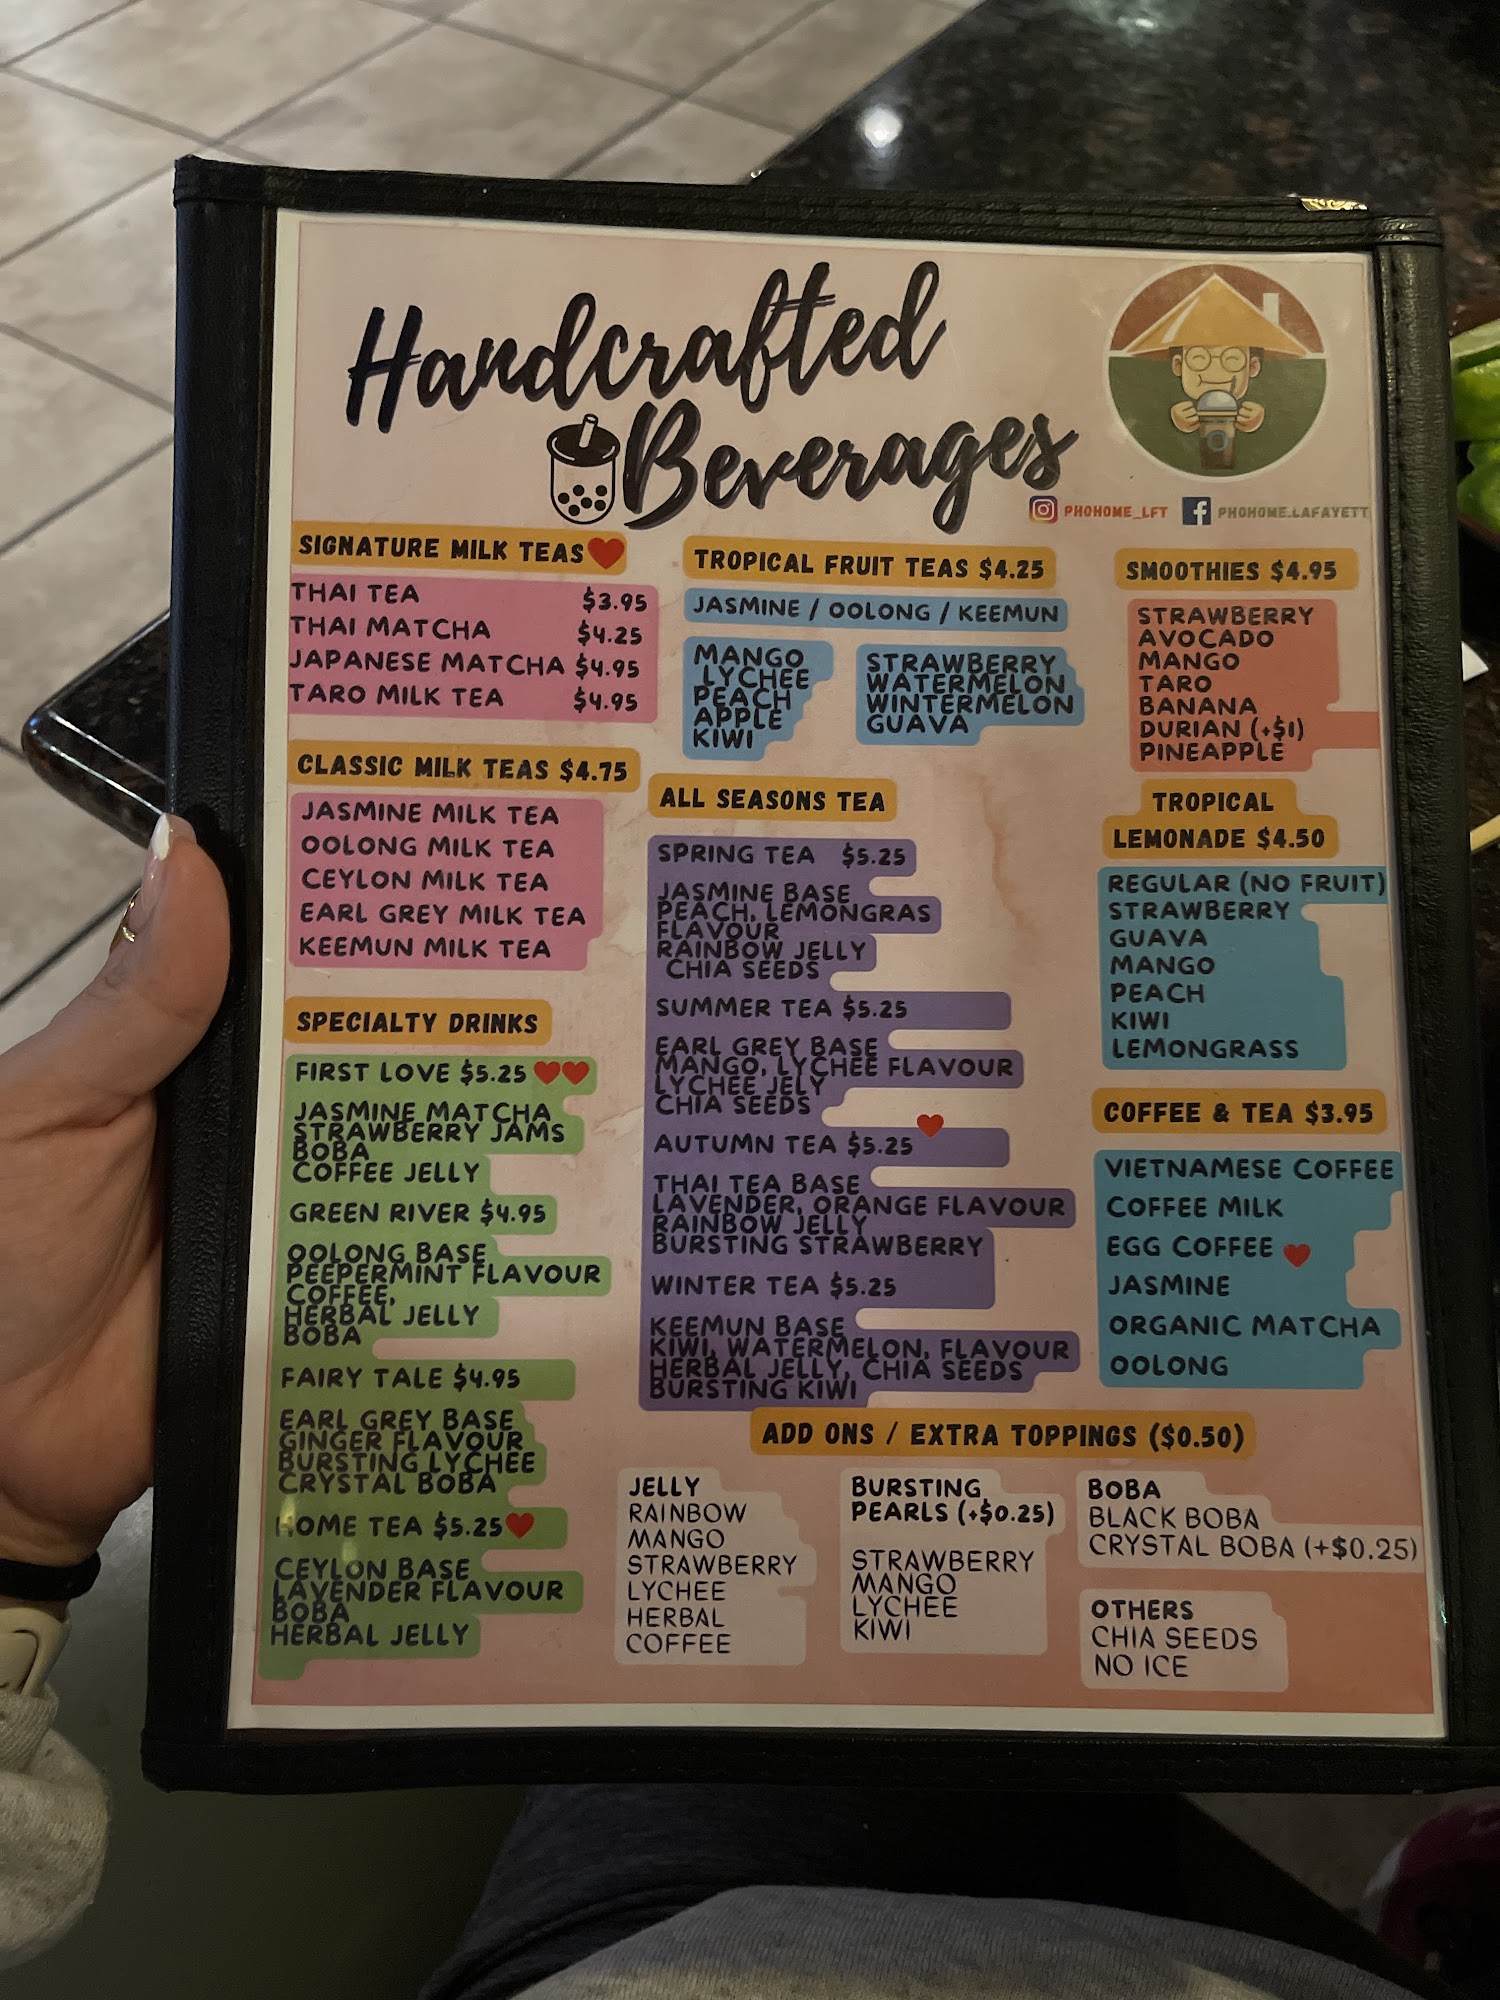 Handcrafted
Beverages
PHOHOME_LFT
PHOHOME.LAFAYETT
SIGNATURE MILK TEAS
THAI TEA $3.95
THAI MATCHA $4.25
JAPANESE MATCHA $4.95
TARO MILK TEA $4.95
CLASSIC MILK TEAS $4.75
JASMINE MILK TEA
OOLONG MILK TEA
CEYLON MILK TEA
EARL GREY MILK TEA
KEEMUN MILK TEA
SPECIALTY DRINKS
FIRST LOVE $5.25
JASMINE MATCHA
STRAWBERRY JAMS
BOBA
COFFEE JELLY
GREEN RIVER $4.95
OOLONG BASE
PEEPERMINT FLAVOUR
COFFEE,
HERBAL JELLY
BOBA
FAIRY TALE $4.95
EARL GREY BASE
GINGER FLAVOUR
BURSTING LYCHEE
CRYSTAL BOBA
HOME TEA $5.25
CEYLON BASE
LAVENDER FLAVOUR
BOBA
HERBAL JELLY
TROPICAL FRUIT TEAS $4.25
JASMINE / OOLONG / KEEMUN
MANGO
LYCHEE
PEACH
APPLE
KIWI
STRAWBERRY
WATERMELON
WINTERMELON
GUAVA
ALL SEASONS TEA
SPRING TEA $5.25
JASMINE BASE
PEACH, LEMONGRAS
FLAVOUR
RAINBOW JELLY
CHIA SEEDS
SUMMER TEA $5.25
EARL GREY BASE
MANGO, LYCHEE FLAVOUR
LYCHEE JELY
CHIA SEEDS
AUTUMN TEA $5.25
THAI TEA BASE
LAVENDER, ORANGE FLAVOUR
RAINBOW JELLY
BURSTING STRAWBERRY
WINTER TEA $5.25
KEEMUN BASE
KIWI, WATERMELON, FLAVOUR
HERBAL JELLY, CHIA SEEDS
BURSTING KIWI
SMOOTHIES $4.95
STRAWBERRY
AVOCADO
MANGO
TARO
BANANA
DURIAN (+$1)
PINEAPPLE
TROPICAL
LEMONADE $4.50
REGULAR (NO FRUIT)
STRAWBERRY
GUAVA
MANGO
PEACH
KIWI
LEMONGRASS
COFFEE & TEA $3.95
VIETNAMESE COFFEE
COFFEE MILK
EGG COFFEE
JASMINE
ORGANIC MATCHA
OOLONG
ADD ONS / EXTRA TOPPINGS ($0.50)
JELLY
RAINBOW
MANGO
STRAWBERRY
LYCHEE
HERBAL
COFFEE
BURSTING
PEARLS (+$0.25)
STRAWBERRY
MANGO
LYCHEE
KIWI
BOBA
BLACK BOBA
CRYSTAL BOBA (+$0.25)
OTHERS
CHIA SEEDS
NO ICE